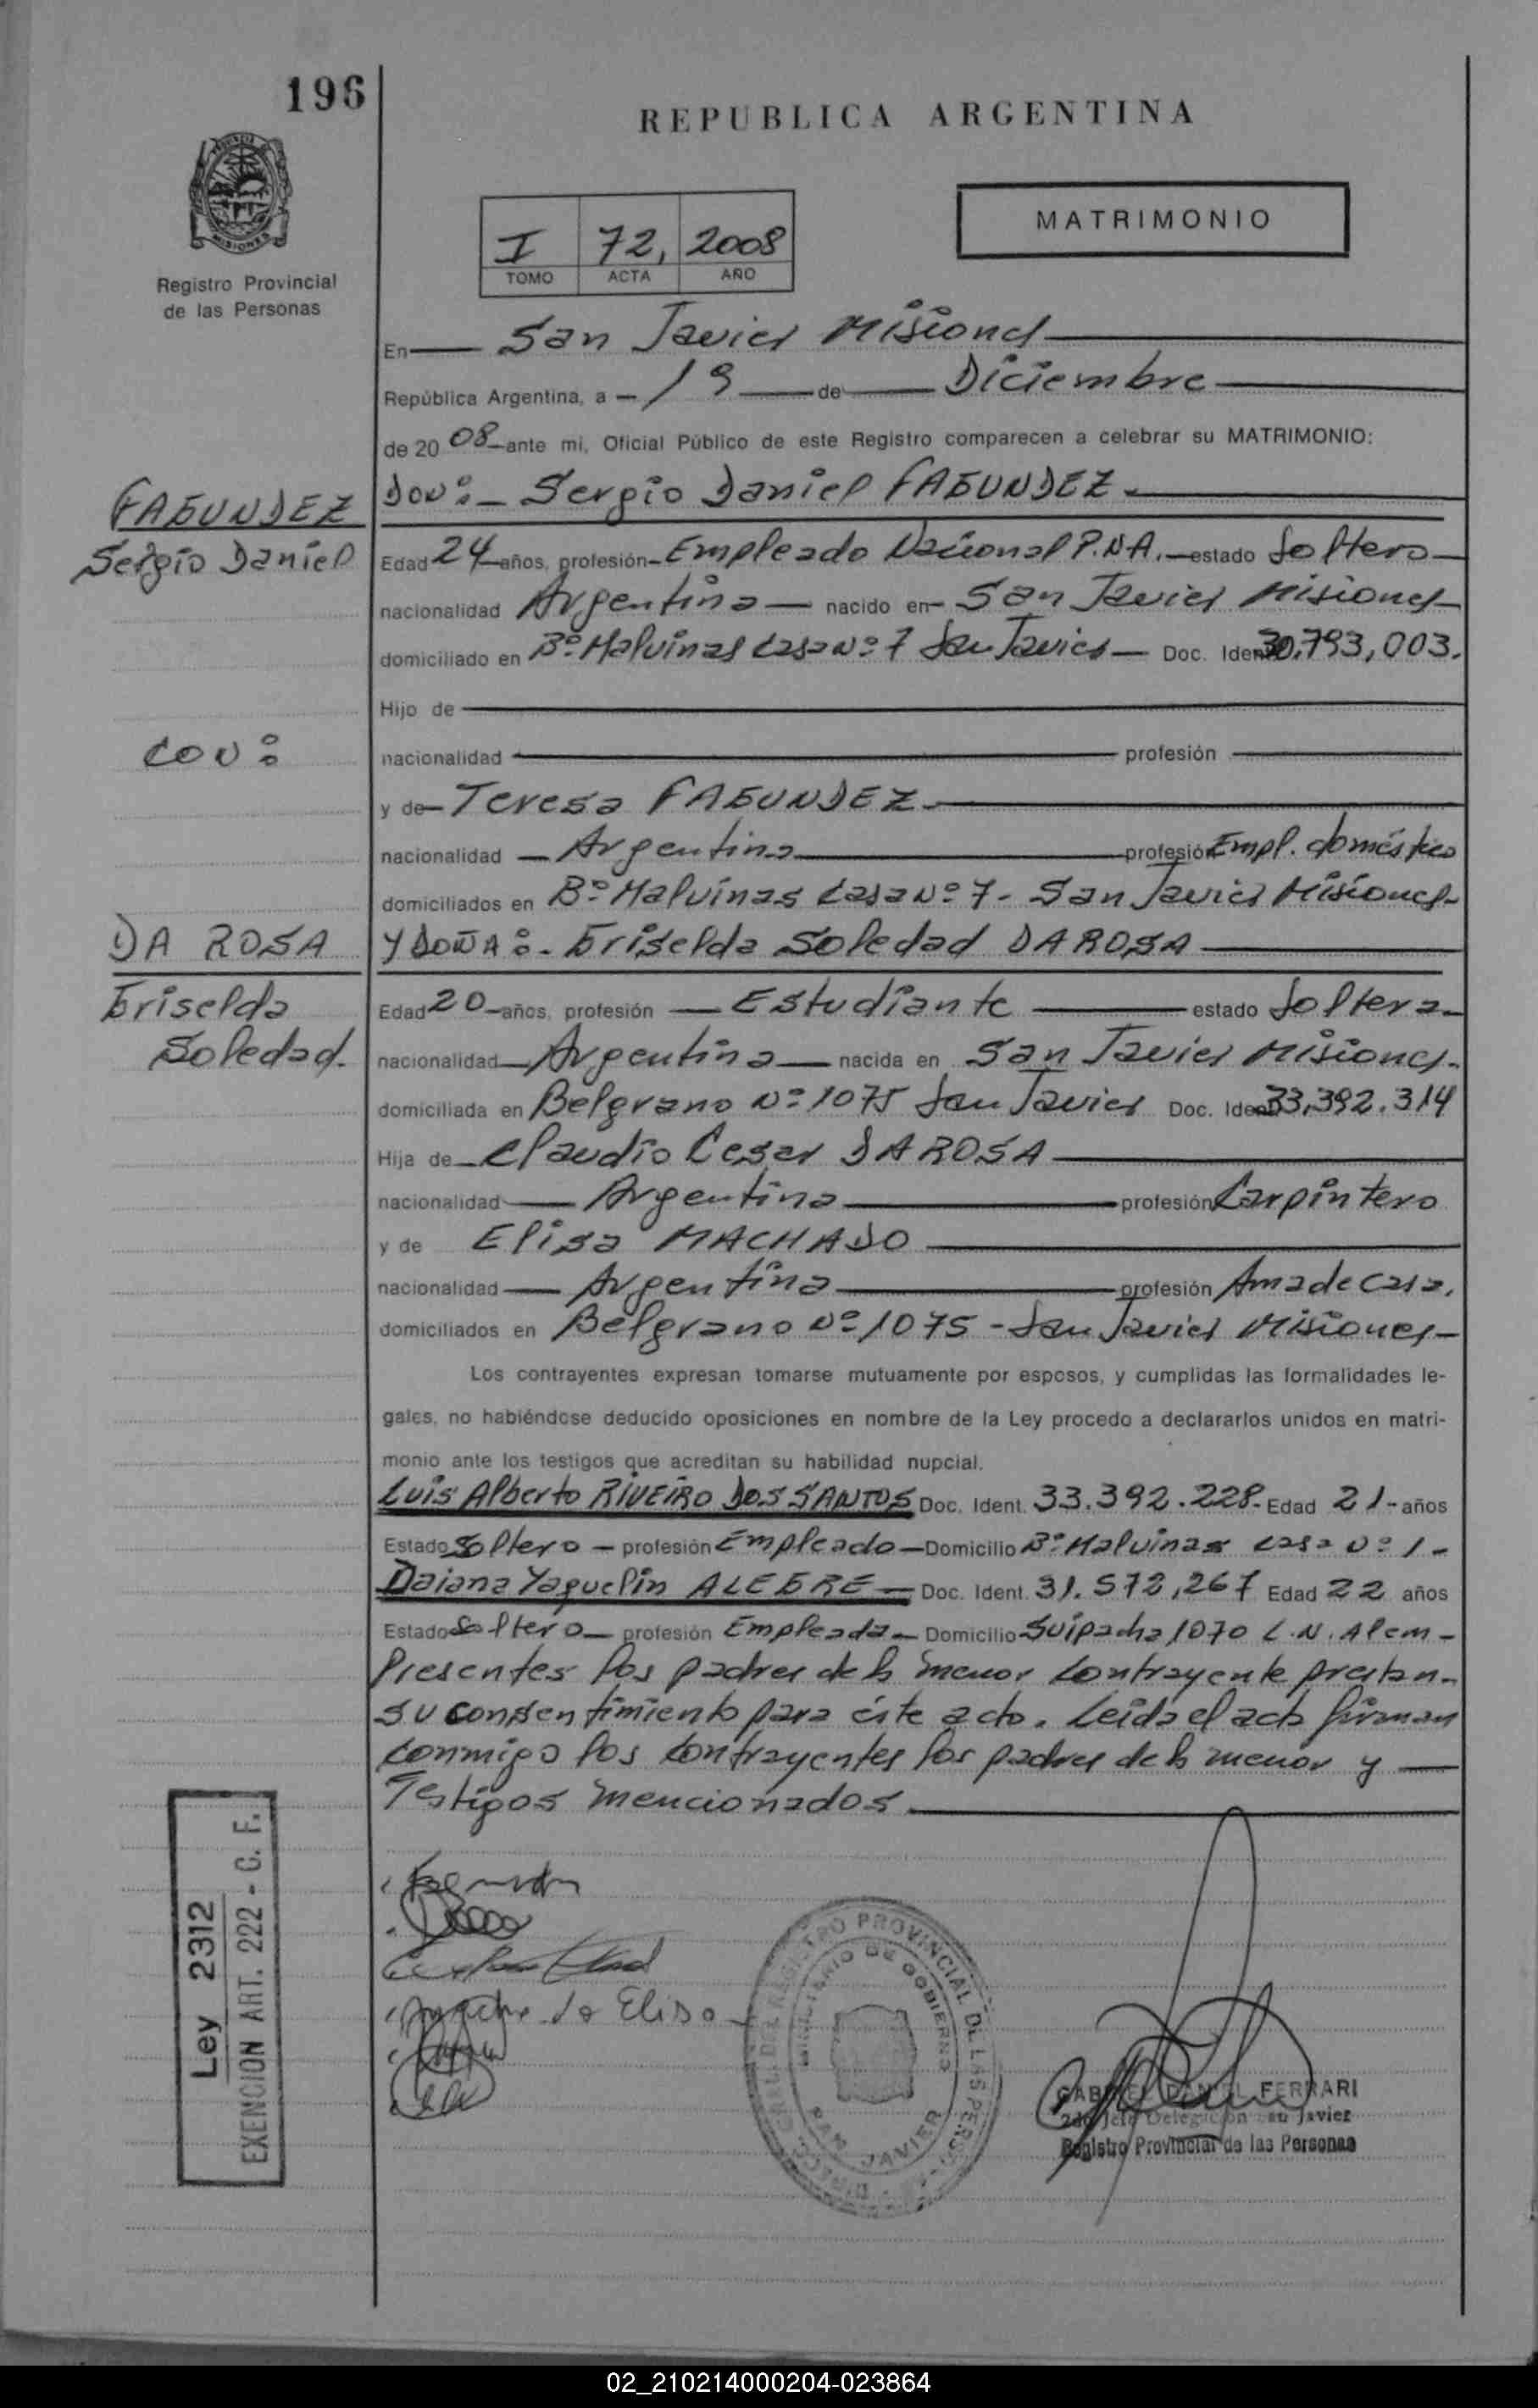 196
REPUBLICA ARGENTINA
MISIONES
Registro Provincial
de las Personas
I 72, 2008
TOMO ACTA AÑO
MATRIMONIO
En San Javier Misiones
República Argentina, a 19 de Diciembre
de 20 08 ante mi, Oficial Público de este Registro comparecen a celebrar su MATRIMONIO:
FAGUNDEZ
Sergio Daniel
DON:- Sergio Daniel FAGUNDEZ.
Edad 24 años, profesión Empleado Nacional P.N.A. estado Soltero
nacionalidad Argentina nacido en San Javier Misiones
domiciliado en Bº Malvinas Casa Nº 7 San Javier Doc. Ident. 30.793,003.
Hijo de
CON:
nacionalidad profesión
y de Teresa FAGUNDEZ
nacionalidad Argentina profesión Empl. doméstico
domiciliados en Bº Malvinas Casa Nº 7- San Javier Misiones
DA ROSA
Griselda
Soledad.
Y DOÑA:- Griselda Soledad DA ROSA
Edad 20 años, profesión Estudiante estado Soltera
nacionalidad Argentina nacida en San Javier Misiones.
domiciliada en Belgrano Nº 1075 San Javier Doc. Ident. 33,392.314
Hija de Claudio Cesar DA ROSA
nacionalidad Argentina profesión Carpintero
y de Elisa MACHADO
nacionalidad Argentina profesión Ama de casa.
domiciliados en Belgrano Nº 1075 - San Javier Misiones
Los contrayentes expresan tomarse mutuamente por esposos, y cumplidas las formalidades le-
gales, no habiéndose deducido oposiciones en nombre de la Ley procedo a declararlos unidos en matri-
monio ante los testigos que acreditan su habilidad nupcial.
Luis Alberto RIVEIRO DOS SANTOS Doc. Ident. 33.392.228- Edad 21- años
Estado Soltero - profesión Empleado - Domicilio Bº Malvinas casa Nº 1-
Daiana Yaquelin ALEGRE - Doc. Ident. 31.572,267 Edad 22 años
Estado Soltero profesión Empleada Domicilio Suipacha 1070 L.N. Alem -
Presentes los padres de la menor contrayente prestan-
su consentimiento para éste acto. Leída el acta firman
conmigo los contrayentes los padres de la menor y
Testigos mencionados
Ley 2312
EXENCION ART. 222 - C. F.
de Elisa
REGISTRO PROVINCIAL DE LAS PERSONAS
MINISTERIO DE GOBIERNO
SAN JAVIER
GABRIEL DANIEL FERRARI
2do Jefe Delegación San Javier
Registro Provincial de las Personas
02_210214000204-023864